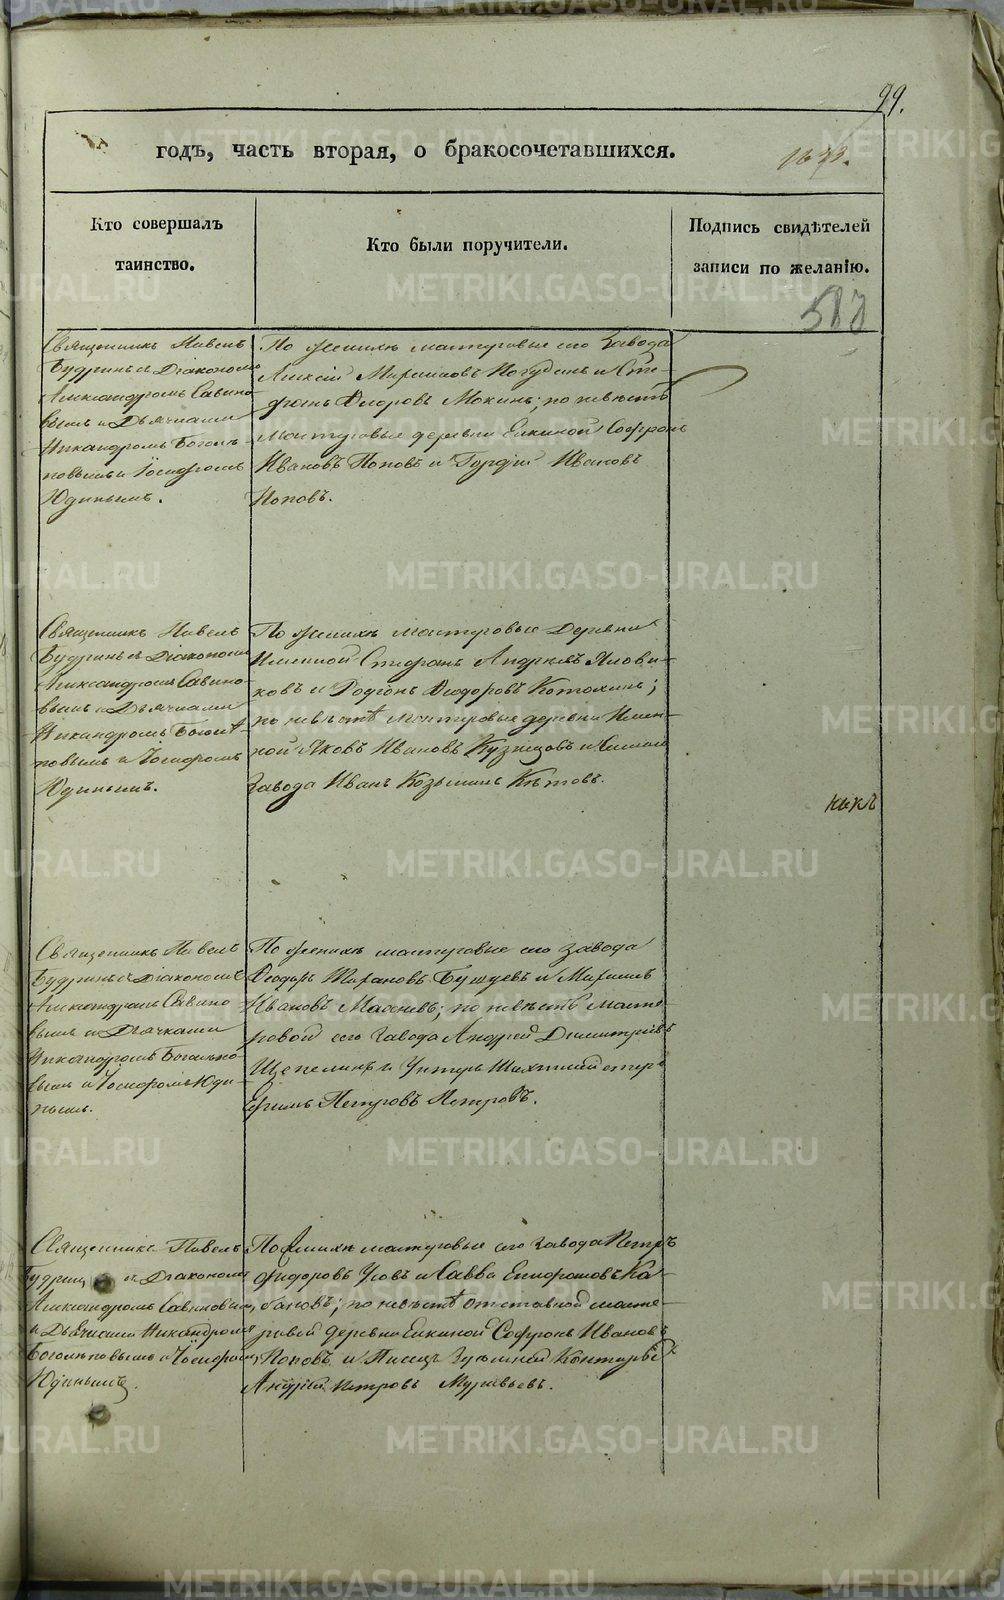 99.
годъ, часть вторая, о бракосочетавшихся.
Кто совершалъ
таинство.
Кто были поручители.
Подпись свидѣтелей
записи по желанію.
587
Священникъ Павелъ
Будринъ съ Діакономъ
Александромъ Савино-
вымъ и Дьячками
Никандромъ Боголѣ-
повымъ и Іосифомъ
Юдинымъ.
По женихѣ мастеровые сего Завода
Алексій Погудинъ и Сте-
фанъ Ѳеодоровъ Мокинъ; по невѣстѣ
Мастеровые деревни Елкиной Софронъ
Ивановъ Поповъ и Гордій Ивановъ
Поповъ.
Священникъ Павелъ
Будринъ съ Діакономъ
Александромъ Савино-
вымъ и Дьячками
Никандромъ Боголѣ-
повымъ и Іосифомъ
Юдинымъ.
По женихѣ мастеровые Деревни
Именной Стефанъ Андреевъ
и Родіонъ Ѳеодоровъ;
по невѣстѣ мастеровые деревни Имен-
ной Яковъ Ивановъ Кузнецовъ и
Завода Иванъ Козьминъ Кѣтовъ.
Священникъ Павелъ
Будринъ съ Діакономъ
Александромъ Савино-
вымъ и Дьячками
Никандромъ Боголѣпо-
вымъ и Іосифомъ Юди-
нымъ.
По женихѣ мастеровые сего завода
Ѳеодоръ Бушуевъ и
Ивановъ Махневъ; по невѣстѣ масте-
ровой сего Завода Андрей Димитріевъ
Щепелинъ и Унтеръ Шахтмейстеръ
Ефимъ Петровъ Петровъ.
Священникъ Павелъ
Будринъ съ Діакономъ
Александромъ Савиновымъ
и Дьячками Никандромъ
Боголѣповымъ и Іосифомъ
Юдинымъ.
По женихѣ мастеровые сего Завода Петръ
Ѳедоровъ Усовъ и Савва Ка-
бановъ; по невѣстѣ отставной масте-
ровой деревни Елкиной Софронъ Ивановъ
Поповъ, и Писецъ Конторы
Андрей Петровъ Муравьевъ.
METRIKI.GASO-URAL.RU